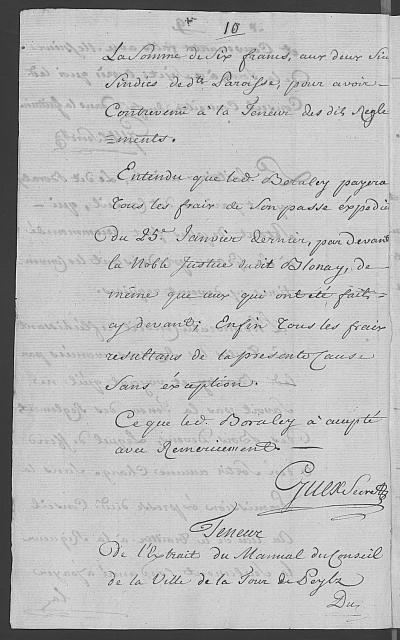 10
La Somme de Six francs, aux deux Srs
Sindics de dte Paroisse, pour avoir
Contrevenu à la Teneur des dits Regle
=ments.
Entendu que led. Boraley payera
Tous les frais de Son passé expedié
du 25e Janvier dernier, par devant
la Noble Justice dudit Blonay, de
même que ceux qui ont été faits
cy devant; Enfin Tous les frais
resultans de la presente Cause
Sans éxception.
Ce que led. Boraley à accepté
avec Remerciement.
Guex Secret
Teneur
De l'Extrait du Manual du Conseil
de la Ville de la Tour de Peylz
Du